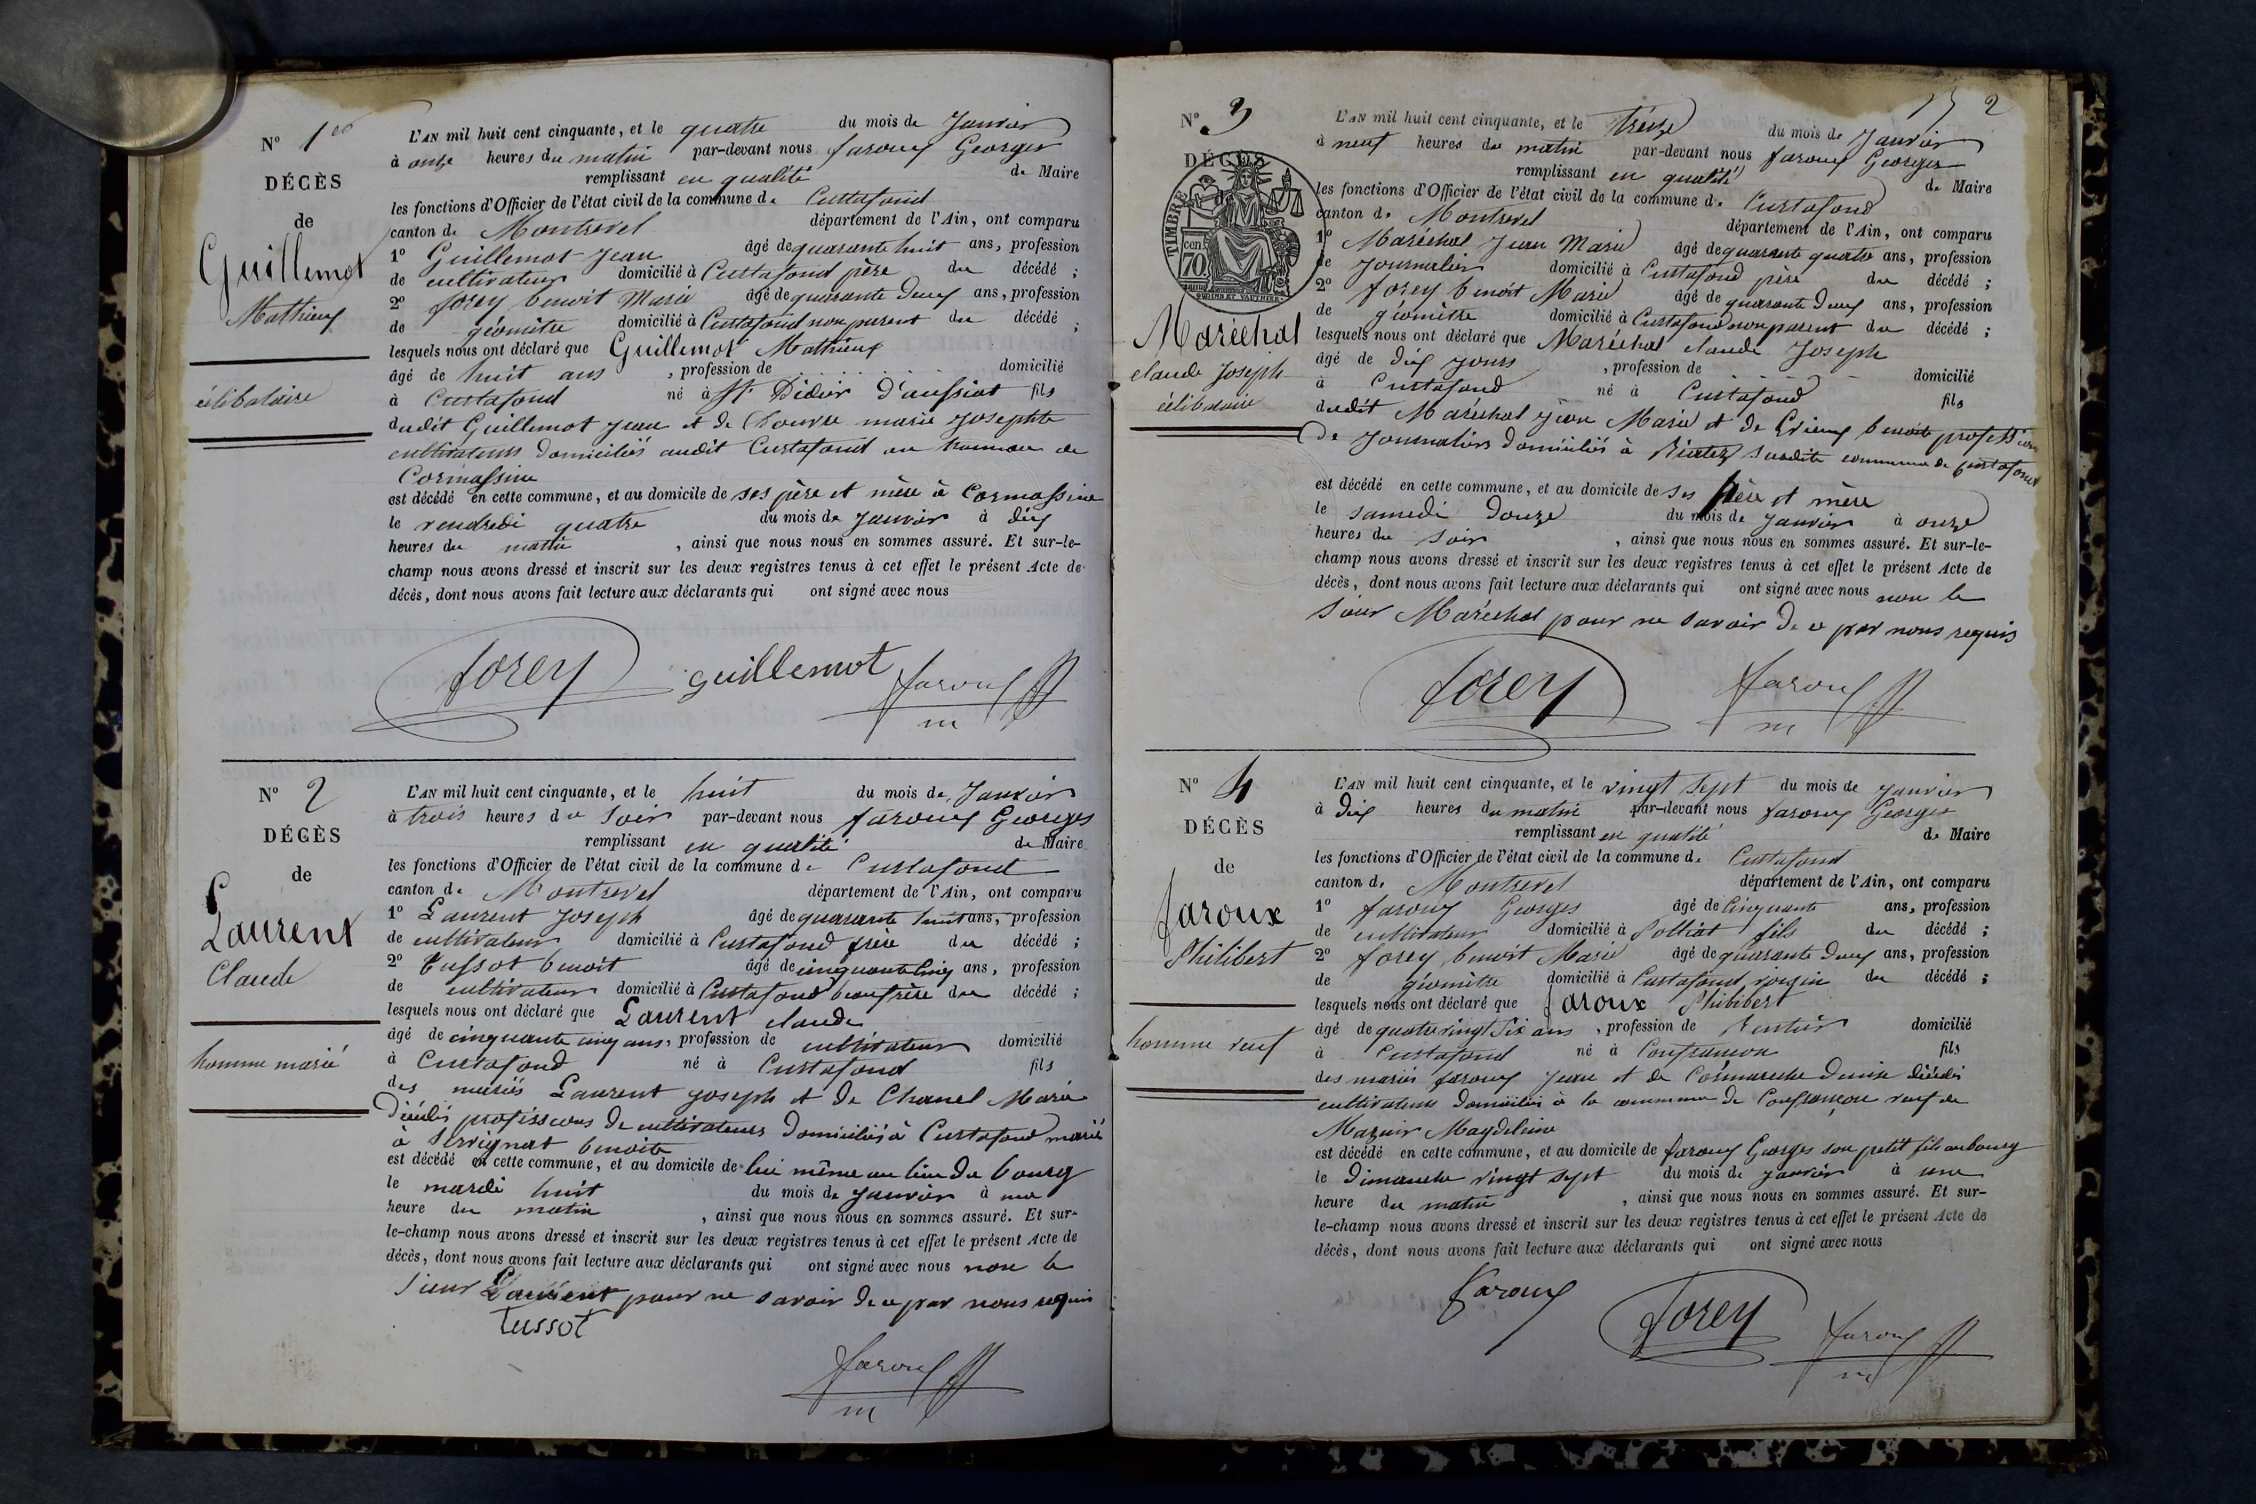 N° 1er
DÉCÈS
de
Guillemot
Mathieux
célibataire
L'AN mil huit cent cinquante, et le quatre du mois de Janvier
à onze heures du matin par-devant nous faroux Georges
remplissant en qualité de Maire
les fonctions d'Officier de l'état civil de la commune de Curtafond
canton de Montrevel département de l'Ain, ont comparu
1° Guillemot Jean âgé de quarante huit ans, profession
de cultivateur domicilié à Curtafond père du décédé ;
2° forey benoit Marie âgé de quarante deux ans, profession
de géomètre domicilié à Curtafond non parent du décédé ;
lesquels nous ont déclaré que Guillemot Mathieux
âgé de huit ans , profession de domicilié
à Curtafond né à St Didier d'aussiat fils
dudit Guillemot Jean et de marie Josephte
cultivateurs domiciliés audit Curtafond au hameau de
Cormassine
est décédé en cette commune, et au domicile de ses père et mère à Cormassine
le vendredi quatre du mois de Janvier à dix
heures du matin , ainsi que nous nous en sommes assuré. Et sur-le-
champ nous avons dressé et inscrit sur les deux registres tenus à cet effet le présent Acte de
décès, dont nous avons fait lecture aux déclarants qui ont signé avec nous
forey guillemot faroux
m
N° 2
DÉCÈS
de
Laurent
Claude
homme marié
L'AN mil huit cent cinquante, et le huit du mois de Janvier
à trois heures du soir par-devant nous faroux Georges
remplissant en qualité de Maire
les fonctions d'Officier de l'état civil de la commune de Curtafond
canton de Montrevel département de l'Ain, ont comparu
1° Laurent Joseph âgé de quarante huit ans, profession
de cultivateur domicilié à Curtafond frère du décédé ;
2° Tussot benoit âgé de cinquante cinq ans, profession
de cultivateur domicilié à Curtafond beaufrère du décédé ;
lesquels nous ont déclaré que Laurent claude
âgé de cinquante cinq ans, profession de cultivateur domicilié
à Curtafond né à Curtafond fils
des mariés Laurent joseph et de Chanel Marie
décédés professions de cultivateurs domiciliés à Curtafond marié
à Servignat benoite
est décédé en cette commune, et au domicile de lui même au lieu du bourg
le mardi huit du mois de Janvier à une
heure du matin , ainsi que nous nous en sommes assuré. Et sur-
le-champ nous avons dressé et inscrit sur les deux registres tenus à cet effet le présent Acte de
décès, dont nous avons fait lecture aux déclarants qui ont signé avec nous non le
sieur Laurent pour ne savoir de ce par nous requis
Tussot
faroux
m
2
N° 3
DÉCÈS
TIMBRE
cen. 70
Maréchal
claude Joseph
célibataire
L'AN mil huit cent cinquante, et le treize du mois de Janvier
à neuf heures du matin par-devant nous faroux Georges
remplissant en qualité de Maire
les fonctions d'Officier de l'état civil de la commune de Curtafond
canton de Montrevel département de l'Ain, ont comparu
1° Maréchal Jean Marie âgé de quarante quatre ans, profession
de Journalier domicilié à Curtafond père du décédé ;
2° forey benoit Marie âgé de quarante deux ans, profession
de géomètre domicilié à Curtafond non parent du décédé ;
lesquels nous ont déclaré que Maréchal claude Joseph
âgé de dix jours , profession de domicilié
à Curtafond né à Curtafond fils
dudit Maréchal Jean Marie et de benoite profession
de journaliers domiciliés à susdite commune de Curtafond
est décédé en cette commune, et au domicile de ses père et mère
le samedi douze du mois de Janvier à onze
heures du soir , ainsi que nous nous en sommes assuré. Et sur-le-
champ nous avons dressé et inscrit sur les deux registres tenus à cet effet le présent Acte de
décès, dont nous avons fait lecture aux déclarants qui ont signé avec nous non le
sieur Maréchal pour ne savoir de ce par nous requis
forey faroux
m
N° 4
DÉCÈS
de
faroux
Philibert
homme veuf
L'AN mil huit cent cinquante, et le vingt sept du mois de Janvier
à dix heures du matin par-devant nous faroux Georges
remplissant en qualité de Maire
les fonctions d'Officier de l'état civil de la commune de Curtafond
canton de Montrevel département de l'Ain, ont comparu
1° faroux Georges âgé de cinquante ans, profession
de cultivateur domicilié à Polliat fils du décédé ;
2° forey benoit Marie âgé de quarante deux ans, profession
de géomètre domicilié à Curtafond voisin du décédé ;
lesquels nous ont déclaré que faroux Philibert
âgé de quatre vingt six ans , profession de Rentier domicilié
à Curtafond né à Confrançon fils
des mariés faroux Jean et de Cormareche Denise décédés
cultivateurs domiciliés à la commune de Confrançon veuf de
Mazuir Magdeleine
est décédé en cette commune, et au domicile de faroux Georges son petit fils au bourg
le Dimanche vingt sept du mois de Janvier à une
heure du matin , ainsi que nous nous en sommes assuré. Et sur-
le-champ nous avons dressé et inscrit sur les deux registres tenus à cet effet le présent Acte de
décès, dont nous avons fait lecture aux déclarants qui ont signé avec nous
faroux forey faroux
m